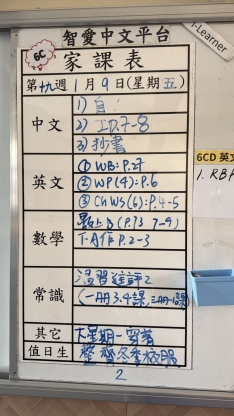 智愛中文平台
6C 家課表
i-Learner
第十九週 1月9日(星期五)
中文
1) 自!
2) 工P.7-8
3) 抄書
英文
① WB: P.27
② WP(4): P.6
③ Ch WS(6): P.4-5
6CD 英文
1. RB
數學
T-A作 P.2-3
常識
溫習進評2
(一冊3,4課, 三冊1課)
其它
下星期一穿著
值日生
整齊冬季校服
2